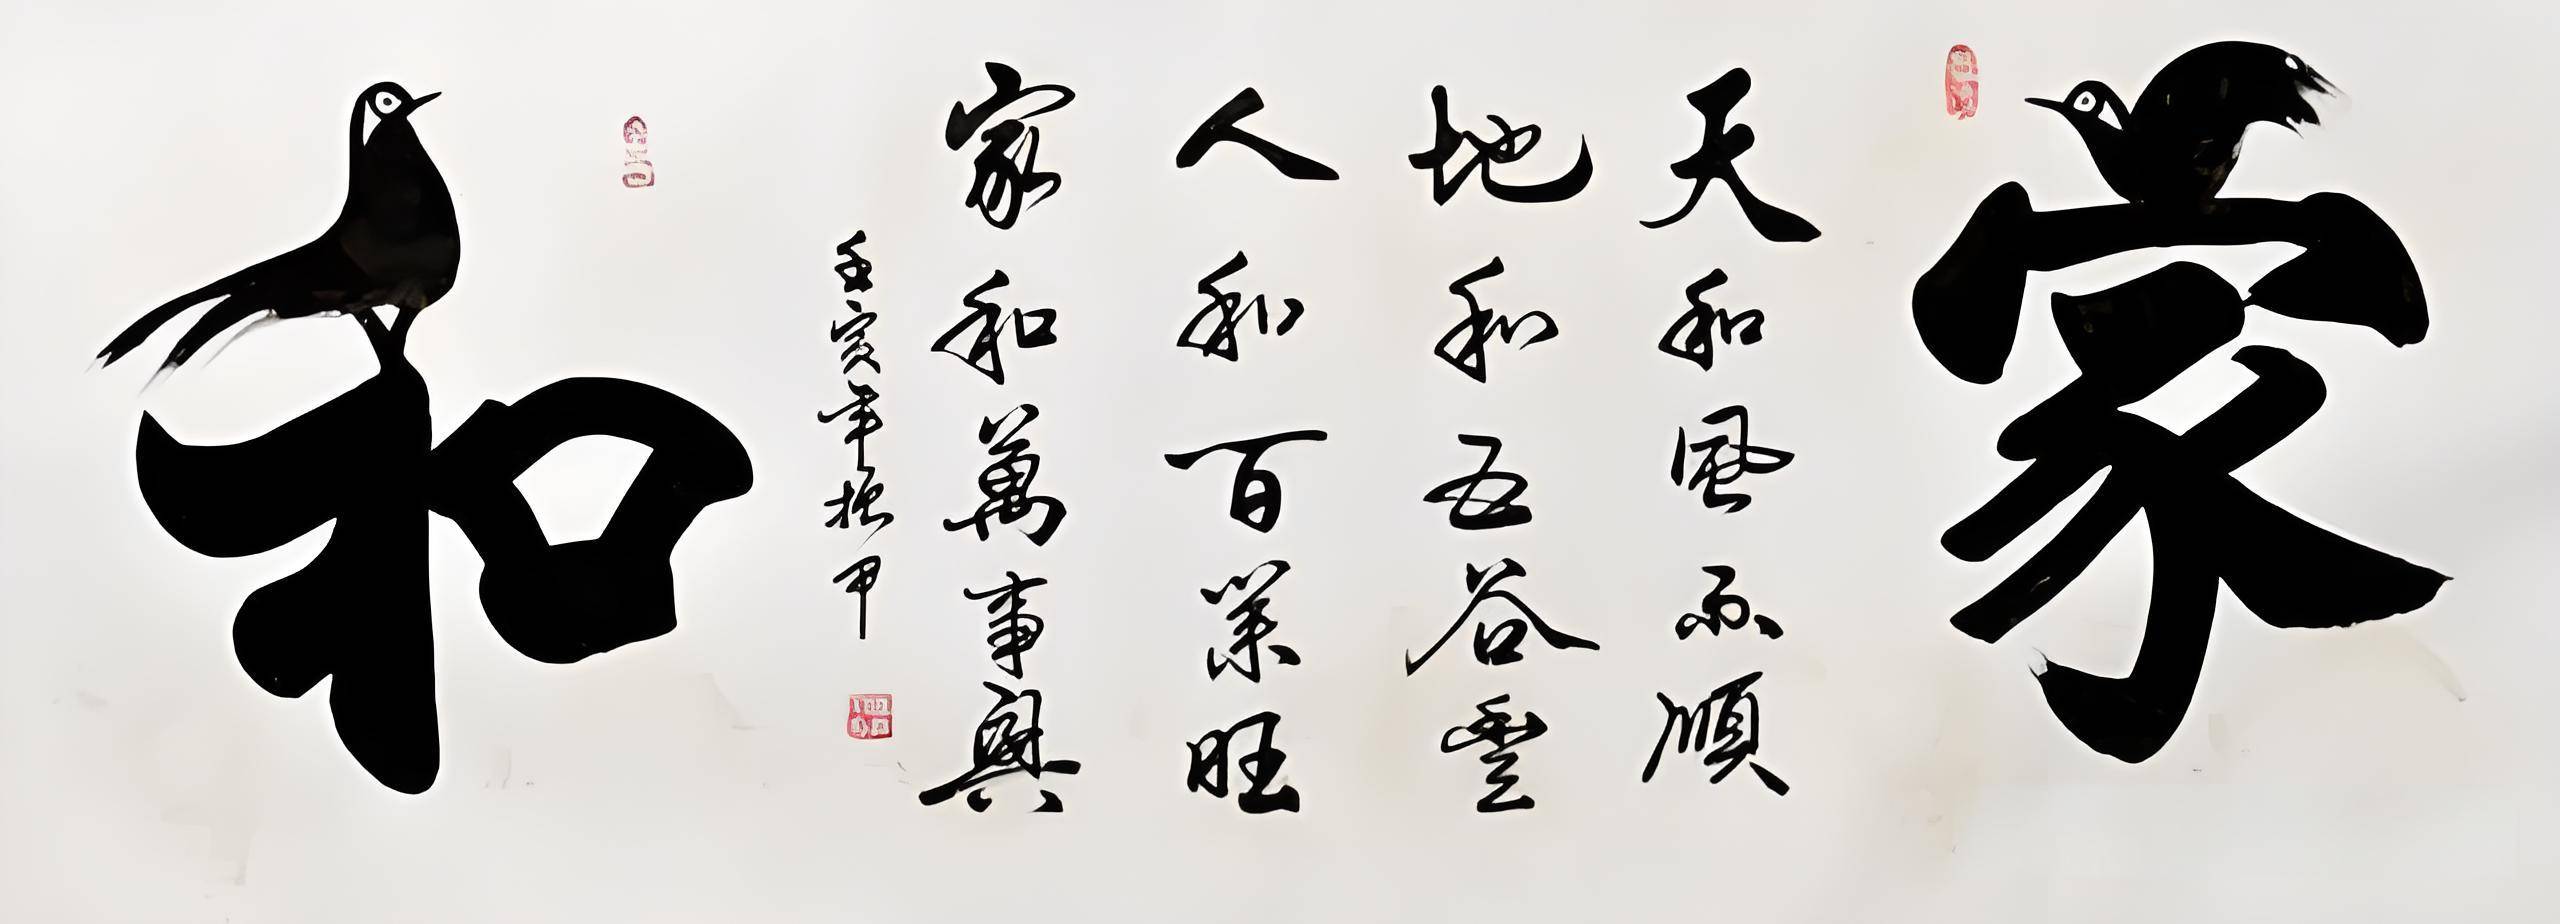 家
天和風雨順
地和五谷豐
人和百業旺
家和萬事興
壬寅年振甲
和